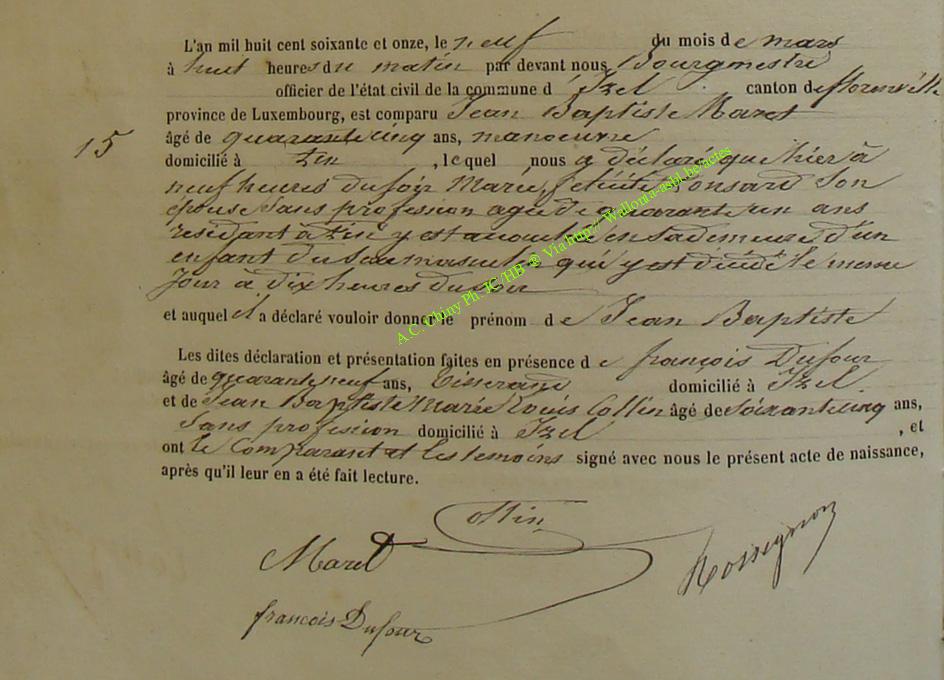 L'an mil huit cent soixante et onze, le neuf du mois de mars
à huit heures du matin par devant nous Bourgmestre
officier de l'état civil de la commune d'Izel canton de florenville
province de Luxembourg, est comparu Jean Baptiste Maret
15
âgé de quarante cinq ans, manoeuvre
domicilié à Izel, lequel nous a déclaré que hier à
neuf heures du soir Marie, félicité Ponsard son
épouse sans profession agée de quarante un ans
résidant à Izel y est accouchée en sa demeure d'un
enfant du sexe masculin qui y est décédé le même
jour à dix heures du soir
et auquel il a déclaré vouloir donner le prénom de Jean Baptiste
Les dites déclaration et présentation faites en présence de françois Dufour
âgé de quarante neuf ans, Tisserand domicilié à Izel.
et de Jean Baptiste Marie Louis Collin âgé de soixante cinq ans,
sans profession domicilié à Izel, et
ont le comparant et les temoins signé avec nous le présent acte de naissance,
après qu'il leur en a été fait lecture.
Collin
Maret
Rossignon
françois Dufour
A.C. Chiny Ph. JC/HB ® Via http://Wallonia-asbl.be/actes